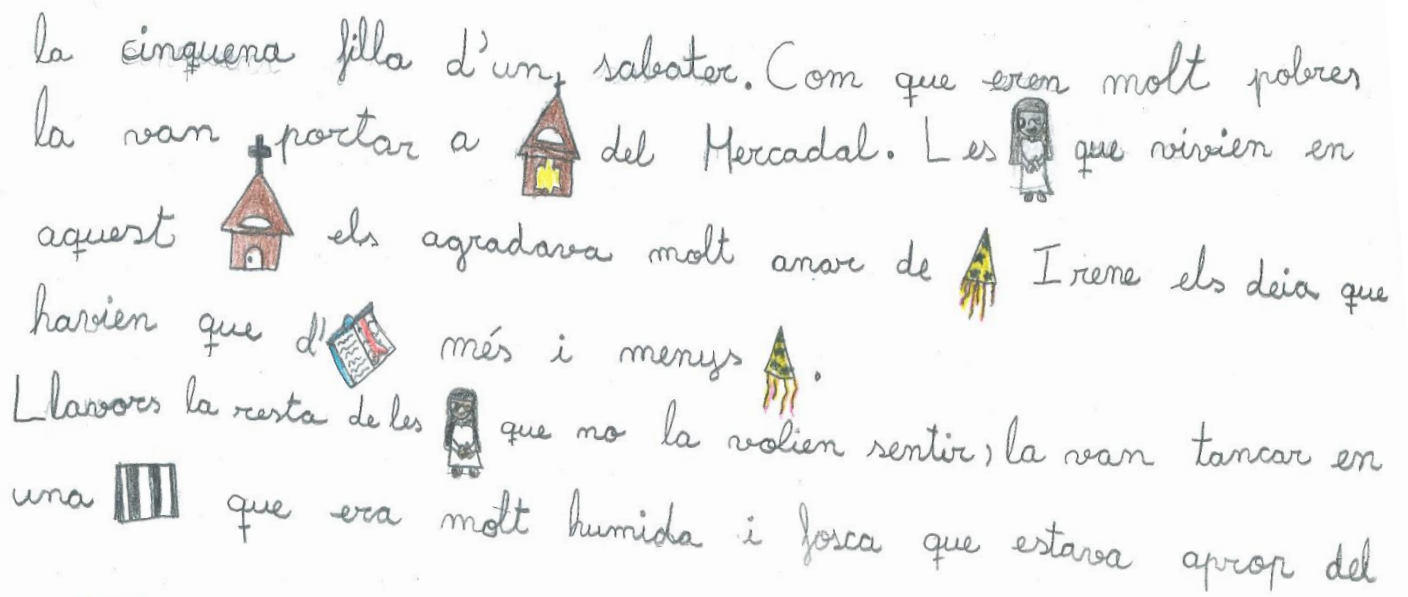 la cinquena filla d'un sabater. Com que eren molt pobres
la van portar a del Mercadal. Les que vivien en
aquest els agradava molt anar de Irene els deia que
havien que d' més i menys .
Llavors la resta de les que no la volien sentir, la van tancar en
una que era molt humida i fosca que estava aprop del